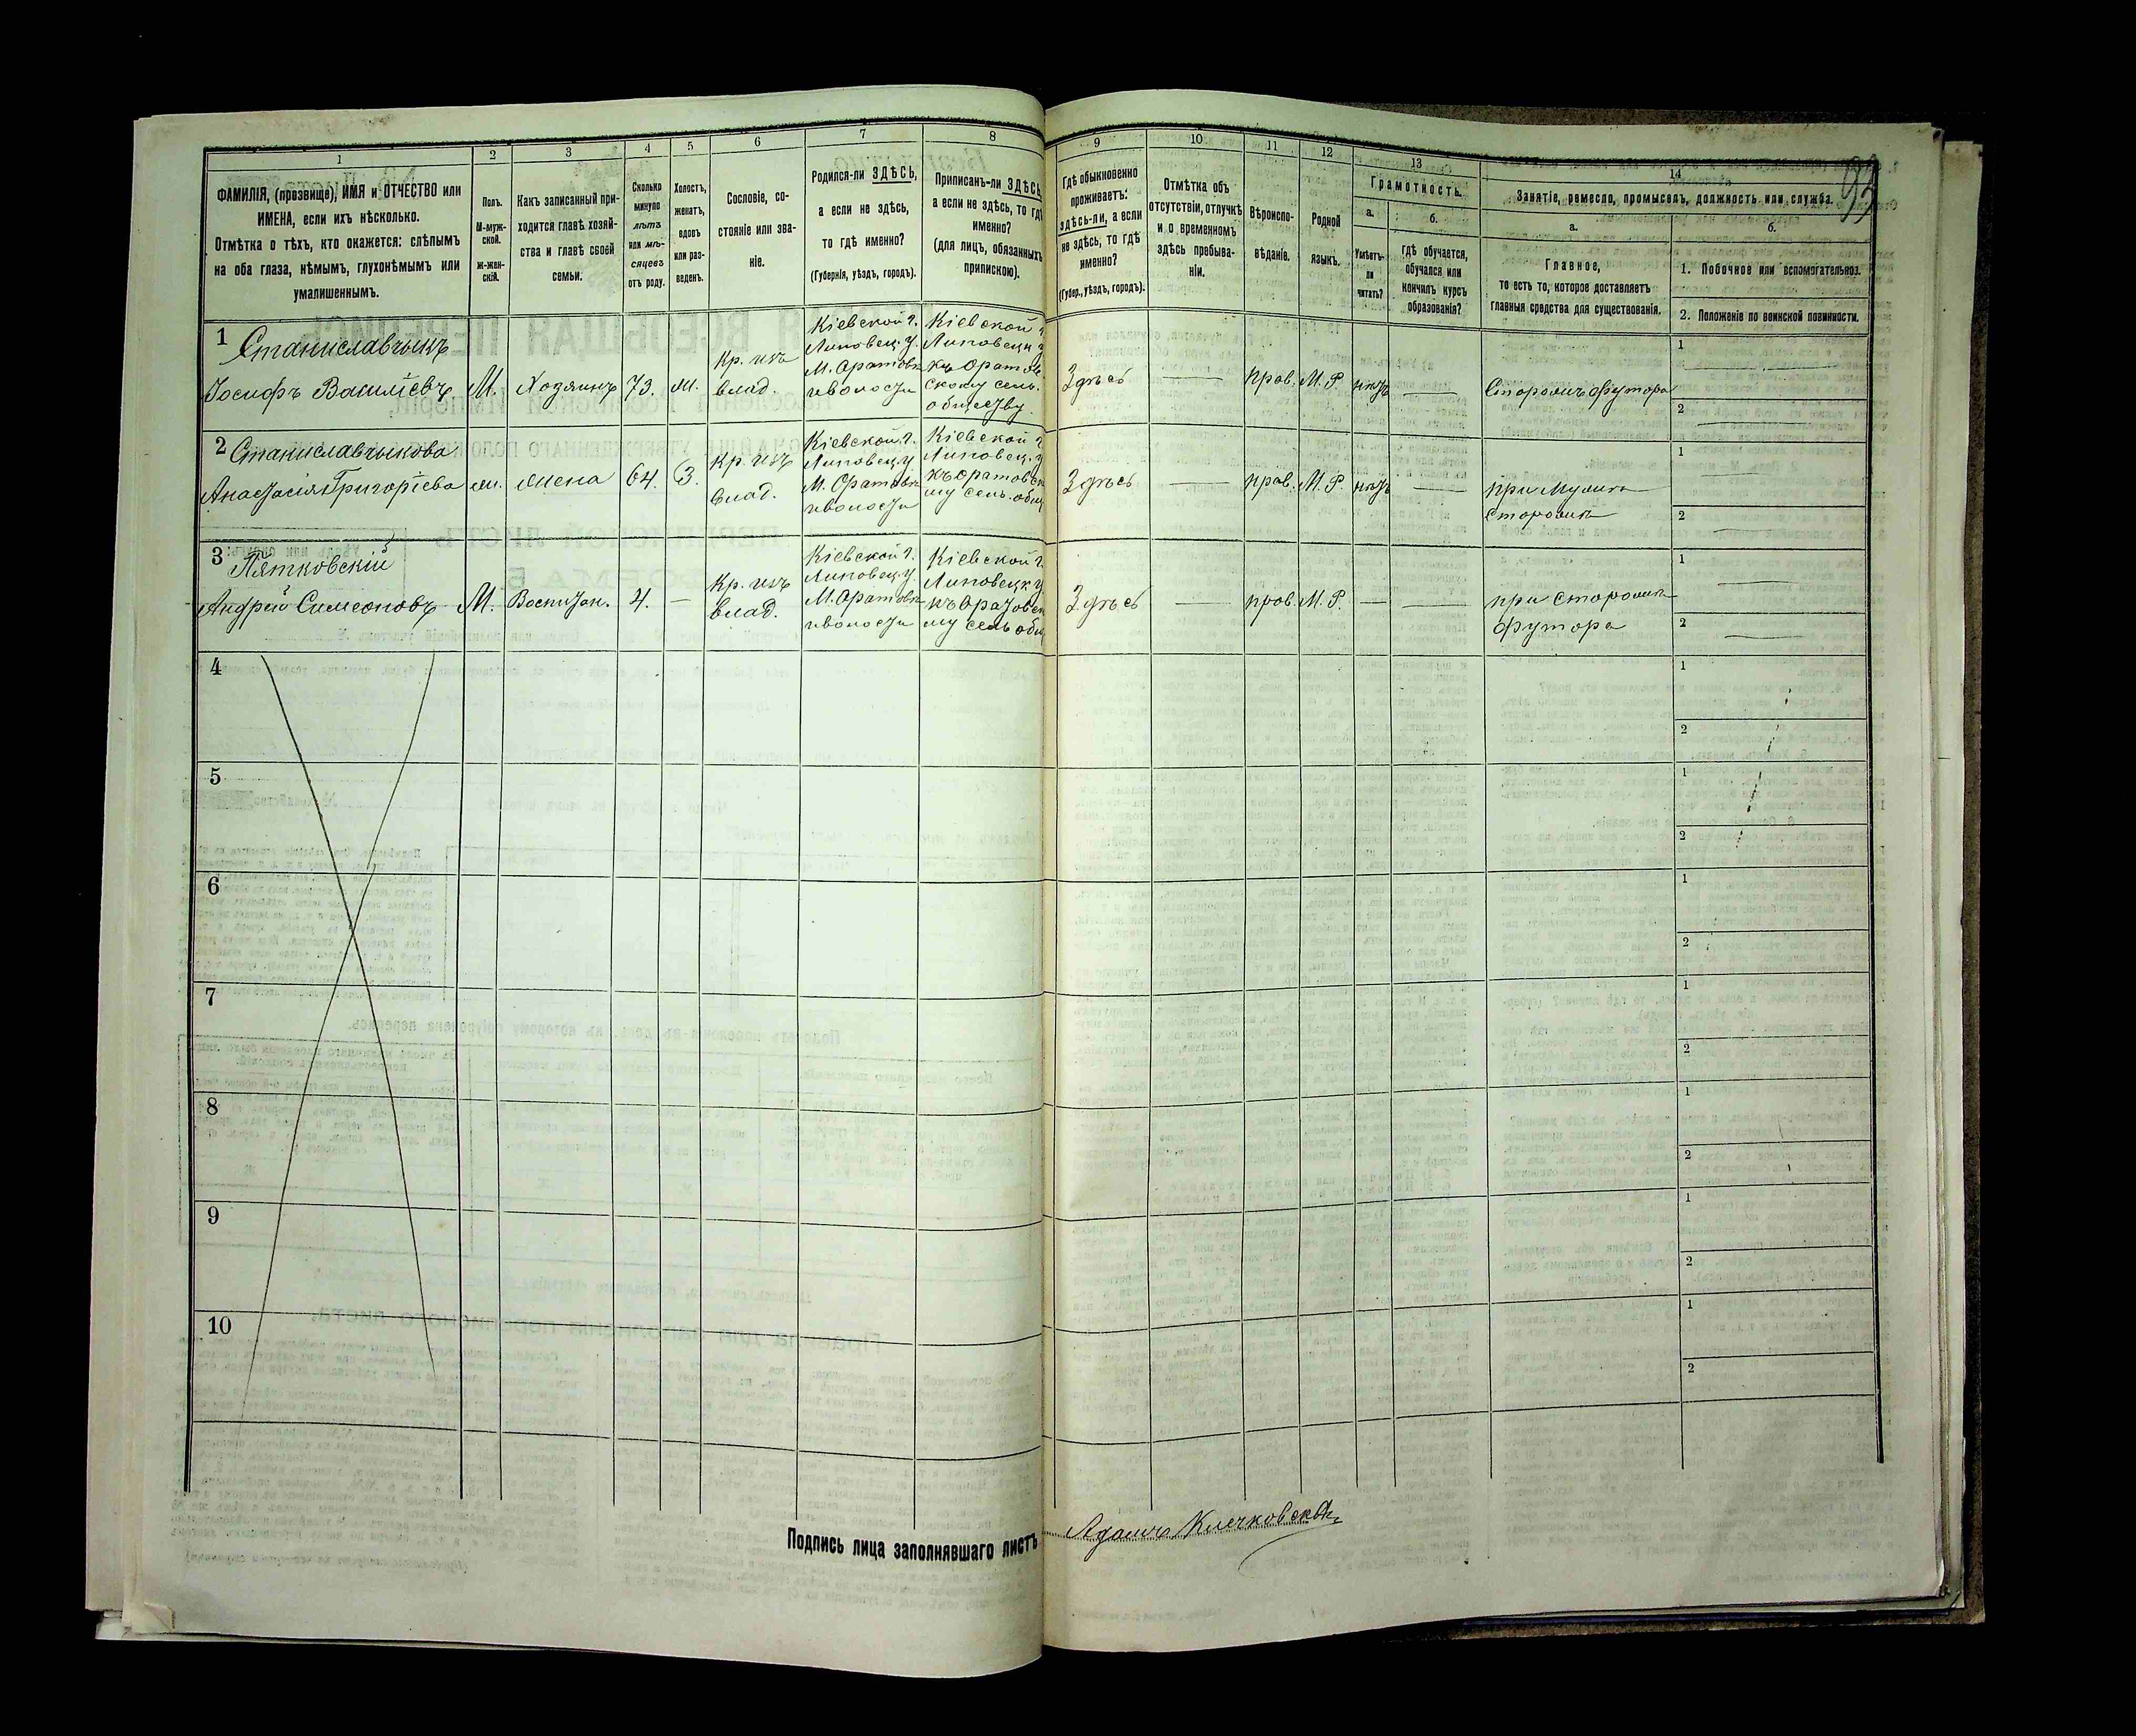 93
1 2 3 4 5 6 7 8 9 10 11 12 13 14
ФАМИЛІЯ, (прозвище), ИМЯ и ОТЧЕСТВО или
ИМЕНА, если ихъ нѣсколько.
Отмѣтка о тѣхъ, кто окажется: слѣпымъ
на оба глаза, нѣмымъ, глухонѣмымъ или
умалишеннымъ.
Полъ.
М-муж-
ской.
Ж-жен-
скій.
Какъ записанный при-
ходится главѣ хозяй-
ства и главѣ своей
семьи.
Сколько
минуло
лѣтъ
или мѣ-
сяцевъ
отъ роду.
Холостъ,
женатъ,
вдовъ
или раз-
веденъ.
Сословіе, со-
стояніе или зва-
ніе.
Родился-ли ЗДѢСЬ,
а если не здѣсь,
то гдѣ именно?
(Губернія, уѣздъ, городъ).
Приписанъ-ли ЗДѢСЬ,
а если не здѣсь, то гдѣ
именно?
(для лицъ, обязанныхъ
припискою).
Гдѣ обыкновенно
проживаетъ:
здѣсь-ли, а если
не здѣсь, то гдѣ
именно?
(Губер., уѣздъ, городъ).
Отмѣтка объ
отсутствіи, отлучкѣ
и о временномъ
здѣсь пребыва-
ніи.
Вѣроиспо-
вѣданіе.
Родной
языкъ.
Грамотность.
а.
Умѣетъ-
ли
читать?
б.
гдѣ обучается,
обучался или
кончилъ курсъ
образованія?
Занятіе, ремесло, промыселъ, должность или служба.
а.
Главное,
то есть то, которое доставляетъ
главныя средства для существованія.
б.
1. Побочное или вспомогательное.
2. Положеніе по воинской повинности.
1 Станиславчыкъ
Іосифъ Василіевъ
М.
Хозяинъ
73.
Ж.
Кр. изъ
влад.
Кіевской г.
Липовец. у.
М. Оратовк
иволости
Кіевской г
Липовецк у
къ Оратов
скому сель.
обществу.
Здѣсь
прав.
М. Р.
нѣтъ
Сторожъ футора
1
2
2 Станиславчыкова
Анастасія Григоріева
ж.
жена
64.
З.
Кр. изъ
влад.
Кіевской. г.
Липовец. у
М. Оратовк
иволости
Кіевской г
Липовец. у
къ Оратовск
му сель. общ
Здѣсь
прав.
М. Р.
нѣтъ
при Мужѣ
сторожѣ
1
2
3 Пятковскій
Андрей Симеоновъ
М.
Воспитан.
4.
Кр. изъ
влад.
Кіевской г.
Липовец. у.
М. Оратовк
иволости
Кіевской г
Липовецк у
къ Оратовск
му сель общ
Здѣсь
прав.
М. Р.
при сторожѣ
футора
1
2
4
1
2
5
1
2
6
1
2
7
1
2
8
1
2
9
1
2
10
1
2
Подпись лица заполнявшаго листъ
Адамъ